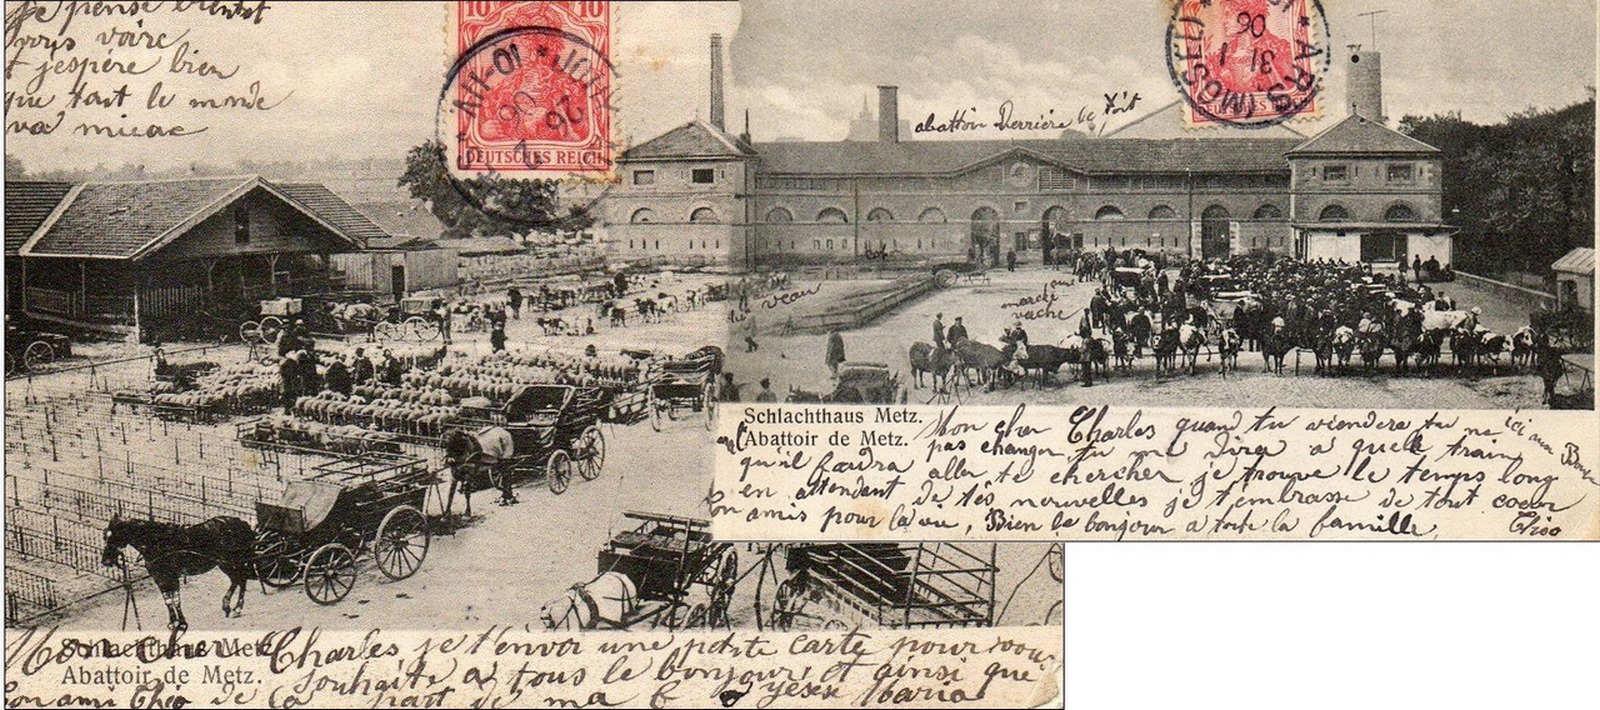 je pense bientot
vous voire
et j'espère bien
que tout le monde
va mieae
10 10
DEUTSCHES REICH
26
2
06
10-11V
31
1
06
ARS (MOSEL)
DEUTSCHES REICH
abattoir Derrière le toit
veau
marché
vache
Schlachthaus Metz.
Abattoir de Metz.
Mon cher Charles quand tu viendera tu ne
pas changer, tu me Dira a quelle train ici aun Bon
qu'il faudra aller te chercher je trouve le temps long
en attendant de tes nouvelles je t'embrasse de tout coeur
ton amis pour la vie, Bien le bonjour a toute la famille, Théo
Mon cher Charles je t'envoi une petite carte pour vous
Schlachthaus Metz.
Abattoir de Metz.
souhaité a tous le bonjour et ainsi que
ton ami Théo de la part de ma Maria